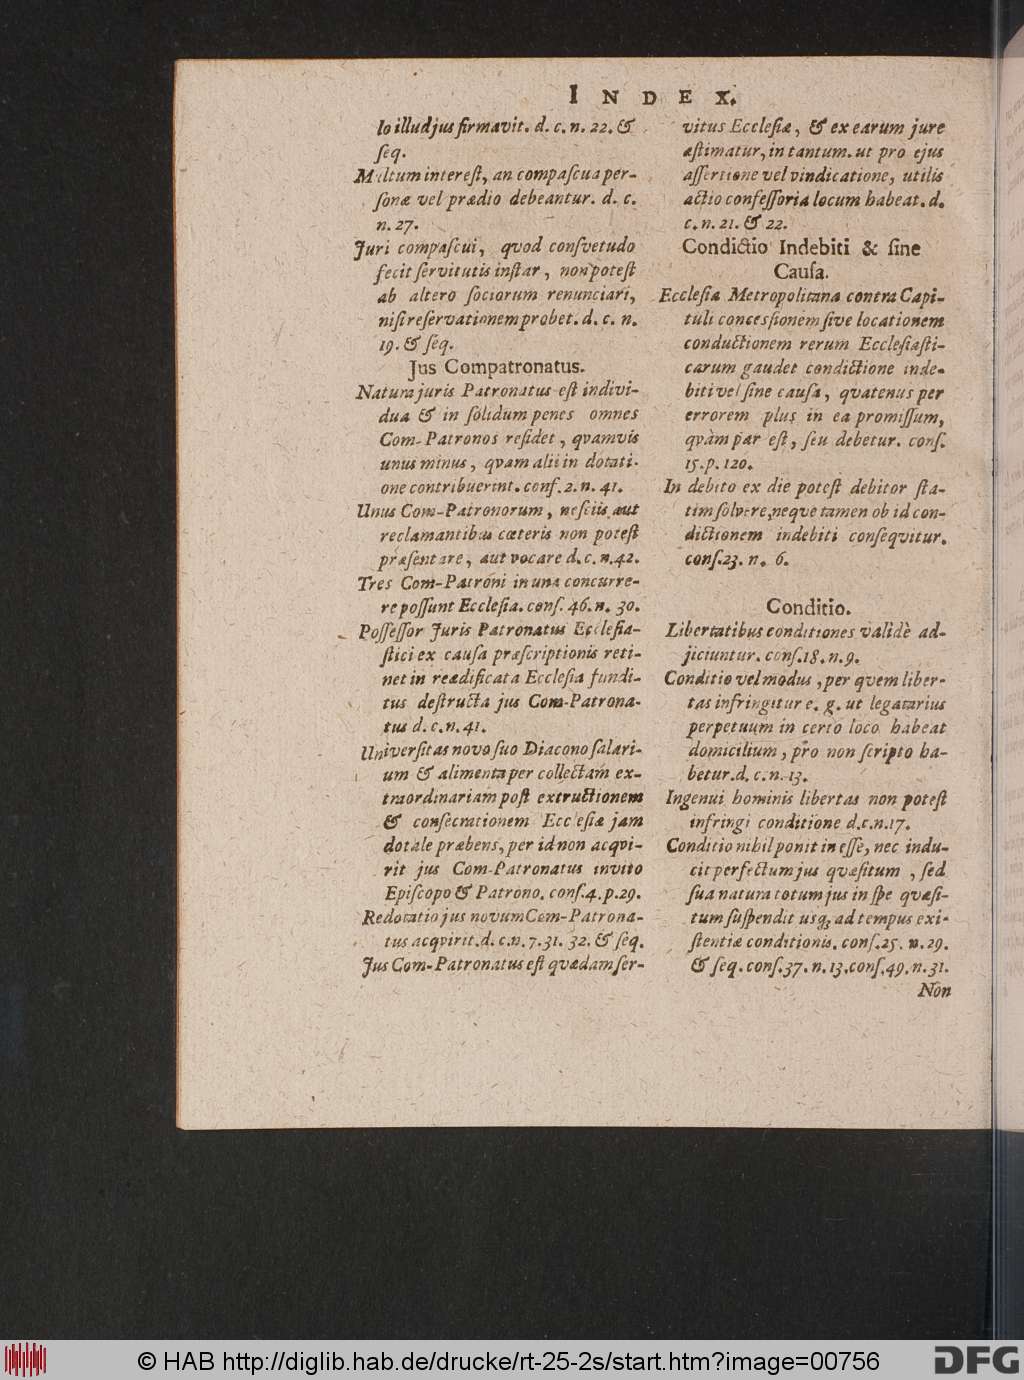 INDEX.
lo illud jus firmavit. d. c. n. 22. &
ſeq.
Multum intereſt, an compaſcua per-
ſonæ vel prædio debeantur. d. c.
n. 27.
Juri compaſcui, qvod conſvetudo
fecit ſervitutis inſtar, non poteſt
ab altero ſociorum renunciari,
niſi reſervationem probet. d. c. n.
19. & ſeq.
Jus Compatronatus.
Natura juris Patronatus eſt indivi-
dua & in ſolidum penes omnes
Com-Patronos reſidet, qvamvis
unus minus, qvam alii in dotati-
one contribuerint. conſ. 2. n. 41.
Unus Com-Patronorum, neſciis aut
reclamantibus cæteris non poteſt
præſentare, aut vocare d. c. n. 42.
Tres Com-Patróni in una concurre-
re poſſunt Eccleſia. conſ. 46. n. 30.
Poſſeſſor Juris Patronatus Eccleſia-
ſtici ex cauſa præſcriptionis reti-
net in reædificata Eccleſia fundi-
tus deſtructa jus Com-Patrona-
tus d. c. n. 41.
Univerſitas novo ſuo Diacono ſalari-
um & alimenta per collectam ex-
traordinariam poſt extructionem
& conſecrationem Eccleſiæ jam
dotale præbens, per id non acqvi-
rit jus Com-Patronatus invito
Epiſcopo & Patrono. conſ. 4. p. 29.
Redotatio jus novum Com-Patrona-
tus acqvirit. d. c. n. 7. 31. 32. & ſeq.
Jus Com-Patronatus eſt qvædam ſer-
vitus Eccleſiæ, & ex earum jure
æſtimatur, in tantum. ut pro ejus
aſſertione vel vindicatione, utilis
actio confeſſoria locum habeat. d.
c. n. 21. & 22.
Condictio Indebiti & ſine
Cauſa.
Eccleſia Metropolitana contra Capi-
tuli concesſionem ſive locationem
conductionem rerum Eccleſiaſti-
carum gaudet condictione inde-
biti vel ſine cauſa, qvatenus per
errorem plus in ea promiſſum,
qvàm par eſt, ſeu debetur. conſ.
15. p. 120.
In debito ex die poteſt debitor ſta-
tim ſolvere, neque tamen ob id con-
dictionem indebiti conſeqvitur.
conſ. 23. n. 6.
Conditio.
Libertatibus conditiones validè ad-
jiciuntur. conſ. 18. n. 9.
Conditio vel modus, per quem liber-
tas infringitur e. g. ut legatarius
perpetuum in certo loco habeat
domicilium, pro non ſcripto ha-
betur. d. c. n. 13.
Ingenui hominis libertas non poteſt
infringi conditione d. c. n. 17.
Conditio nihil ponit in eſſe, nec indu-
cit perfectum jus qvæſitum, ſed
ſua natura totum jus in ſpe qvæſi-
tum ſuſpendit usq; ad tempus exi-
ſtentiæ conditionis. conſ. 25. n. 29.
& ſeq. conſ. 37. n. 13. conſ. 49. n. 31.
Non
© HAB http://diglib.hab.de/drucke/rt-25-2s/start.htm?image=00756
DFG